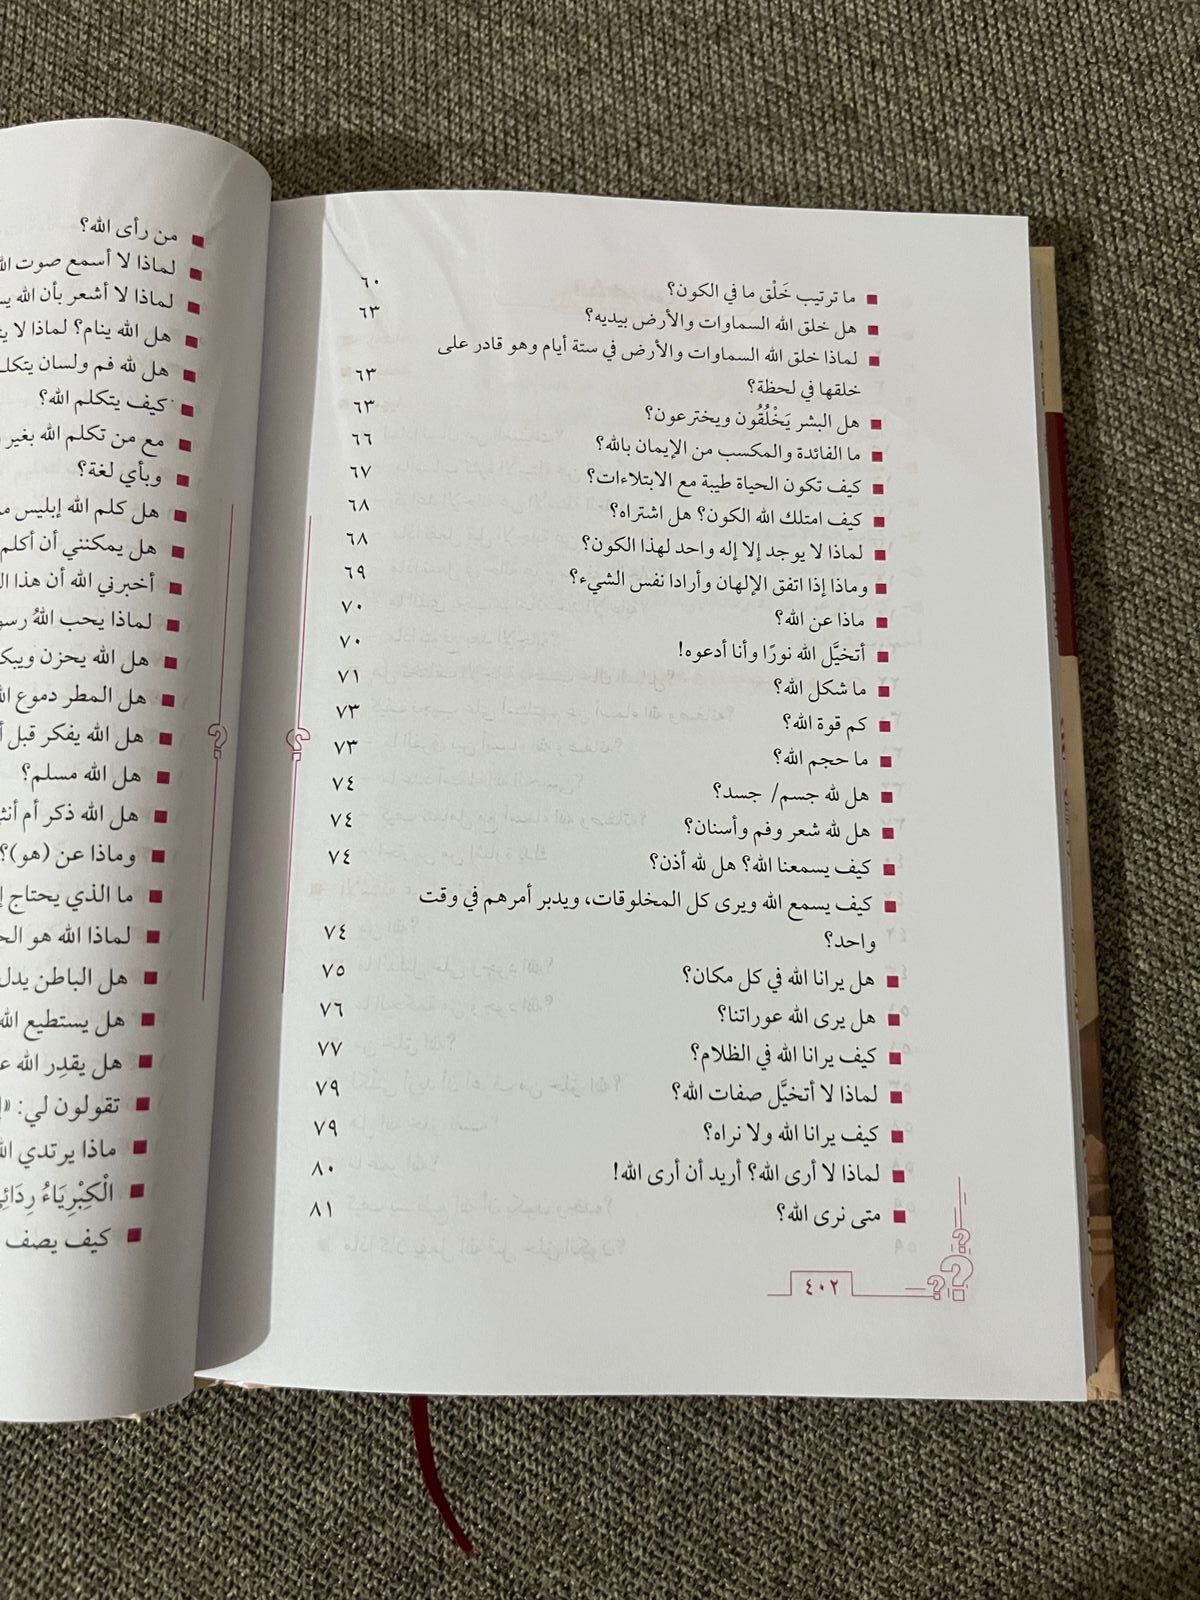 ما ترتيب خَلْق ما في الكون؟ ٦٠
هل خلق الله السماوات والأرض بيديه؟ ٦٣
لماذا خلق الله السماوات والأرض في ستة أيام وهو قادر على
خلقها في لحظة؟ ٦٣
هل البشر يَخْلُقُون ويخترعون؟ ٦٣
ما الفائدة والمكسب من الإيمان بالله؟ ٦٦
كيف تكون الحياة طيبة مع الابتلاءات؟ ٦٧
كيف امتلك الله الكون؟ هل اشتراه؟ ٦٨
لماذا لا يوجد إلا إله واحد لهذا الكون؟ ٦٨
وماذا إذا اتفق الإلهان وأرادا نفس الشيء؟ ٦٩
ماذا عن الله؟ ٧٠
أتخيَّل الله نورًا وأنا أدعوه! ٧٠
ما شكل الله؟ ٧١
كم قوة الله؟ ٧٣
ما حجم الله؟ ٧٣
هل لله جسم/ جسد؟ ٧٤
هل لله شعر وفم وأسنان؟ ٧٤
كيف يسمعنا الله؟ هل لله أذن؟ ٧٤
كيف يسمع الله ويرى كل المخلوقات، ويدبر أمرهم في وقت
واحد؟ ٧٤
هل يرانا الله في كل مكان؟ ٧٥
هل يرى الله عوراتنا؟ ٧٦
كيف يرانا الله في الظلام؟ ٧٧
لماذا لا أتخيَّل صفات الله؟ ٧٩
كيف يرانا الله ولا نراه؟ ٧٩
لماذا لا أرى الله؟ أريد أن أرى الله! ٨٠
متى نرى الله؟ ٨١
٤٠٢
من رأى الله؟
لماذا لا أسمع صوت
لماذا لا أشعر بأن الله
هل الله ينام؟ لماذا لا
هل لله فم ولسان
كيف يتكلم الله؟
مع من تكلم الله بغير
وبأي لغة؟
هل كلم الله إبليس
هل يمكنني أن أكلم
أخبرني الله أن هذا
لماذا يحب اللهُ
هل الله يحزن
هل المطر دموع
هل الله يفكر قبل
هل الله مسلم؟
هل الله ذكر أم
وماذا عن (هو)؟
ما الذي يحتاج
لماذا الله هو
هل الباطن يدل
هل يستطيع الله
هل يقدِر الله
تقولون لي:
ماذا يرتدي
الْكِبْرِيَاءُ
كيف يصف